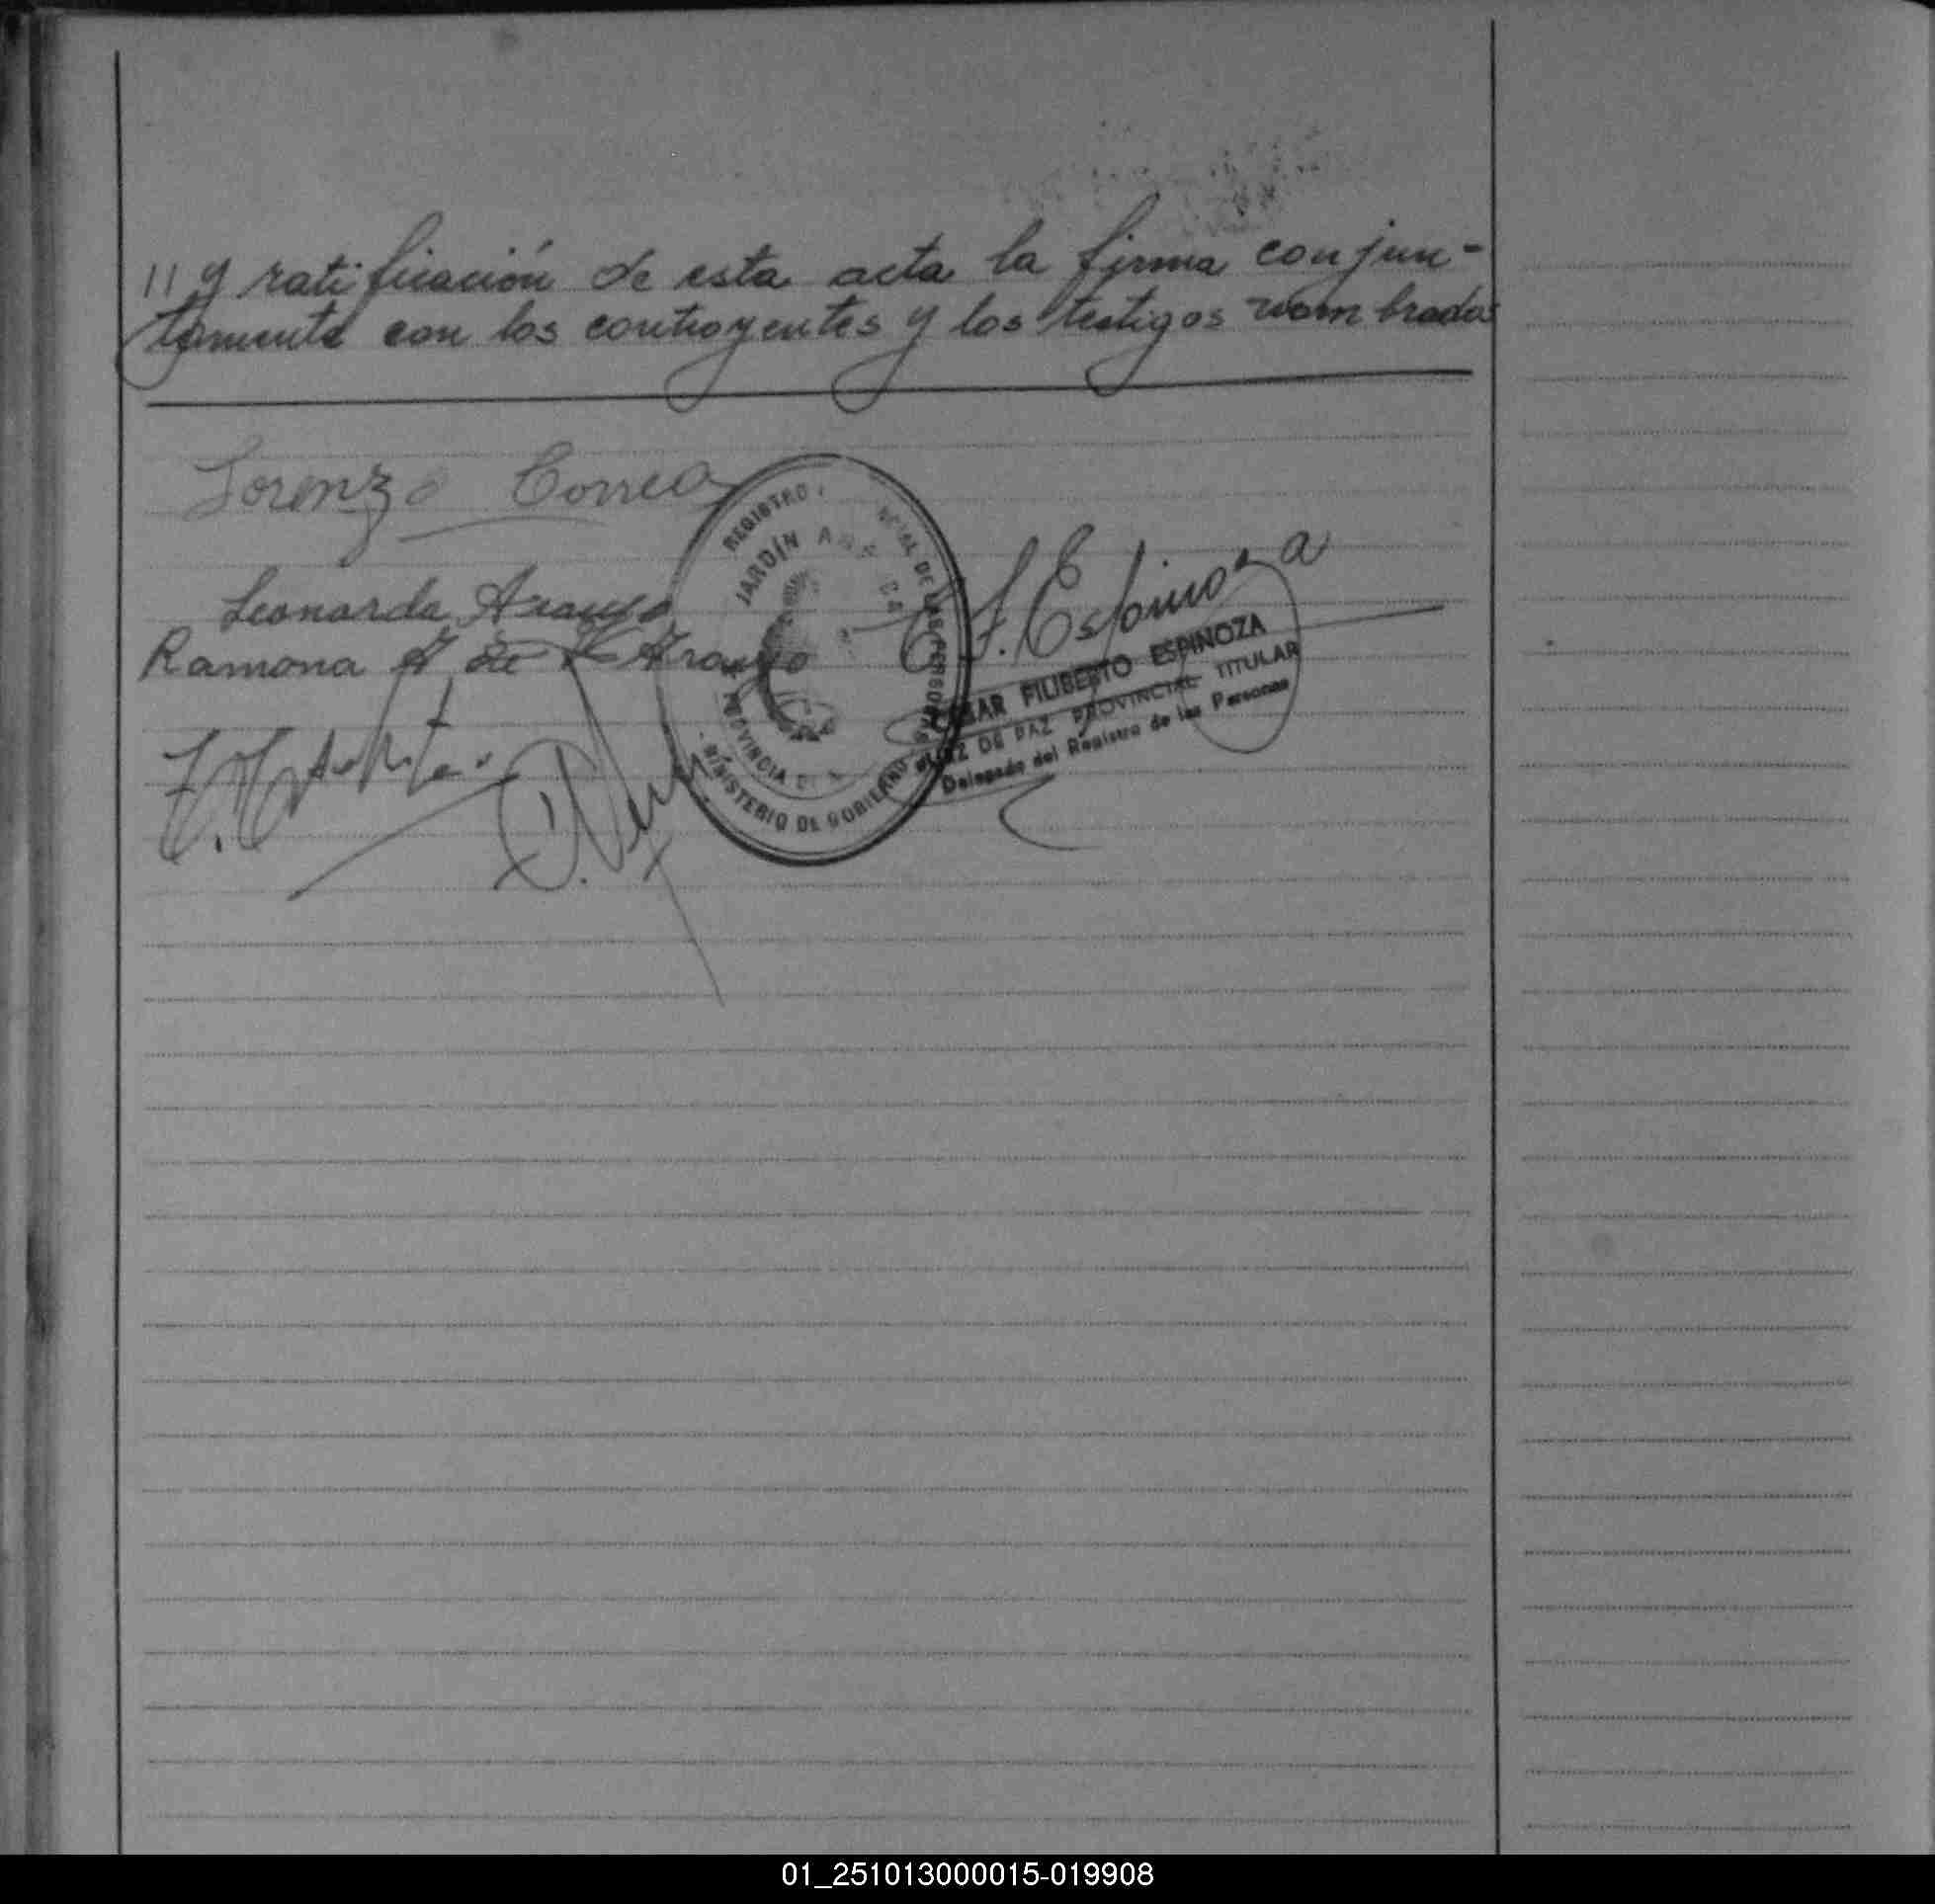 // y ratificación de esta acta la firma conjun-
tamente con los contrayentes y los testigos nombrados
Lorenzo Correa
Leonarda Araujo
Ramona A de Araujo
C. F. Espinoza
REGISTRO DE LAS PERSONAS
JARDÍN
PROVINCIA DE
MINISTERIO DE GOBIERNO
CESAR FILIBERTO ESPINOZA
JUEZ DE PAZ PROVINCIAL TITULAR
Delegado del Registro de las Personas
01_251013000015-019908